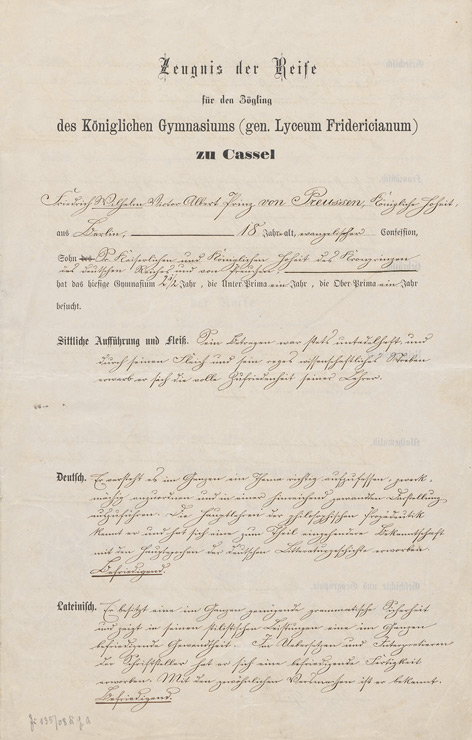 Zeugnis der Reife
für den Zögling
des Königlichen Gymnasiums (gen. Lyceum Fridericianum)
zu Cassel
Friedrich Wilhelm Victor Albert Prinz von Preussen, Königliche Hoheit,
aus Berlin, 18 Jahr alt, evangelischer Confession,
Sohn des Sr. Kaiserlichen und Königlichen Hoheit des Kronprinzen
des deutschen Reiches und von Preußen
hat das hiesige Gymnasium 2½ Jahr, die Unter-Prima ein Jahr, die Ober-Prima ein Jahr
besucht.
Sittliche Aufführung und Fleiß. Sein Betragen war stets untadelhaft, und
durch seinen Fleiß und sein reges wissenschaftliches Streben
erwarb er sich die volle Zufriedenheit seiner Lehrer.
Deutsch. Er versteht es im Ganzen ein Thema richtig aufzufassen, zweck-
mäßig anzuordnen und in einer hinreichend gewandten Darstellung
auszuführen. Die Hauptlehren der philosophischen Propädeutik
kennt er und hat sich eine zum Theil eingehendere Bekanntschaft
mit den Hauptepochen der deutschen Litteraturgeschichte erworben.
Befriedigend.
Lateinisch. Er besitzt eine im Ganzen genügende grammatische Sicherheit
und zeigt in seinen stilistischen Leistungen eine im Ganzen
befriedigende Gewandtheit. Im Uebersetzen und Interpretieren
der Schriftsteller hat er sich eine befriedigende Fertigkeit
erworben. Mit den gewöhnlichen Versmaßen ist er bekannt.
Befriedigend.